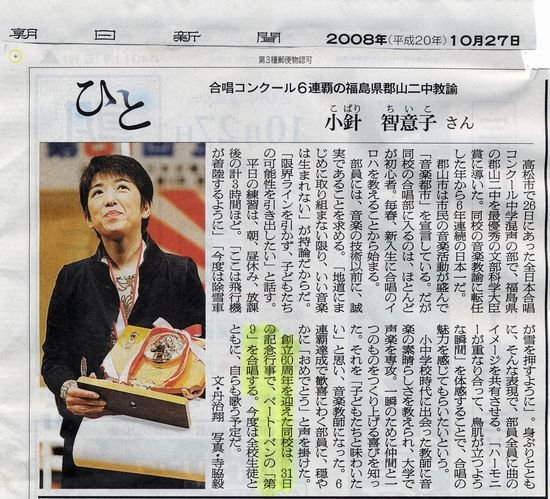 朝日新聞
2008年(平成20年)10月27日
第3種郵便物認可
ひと
合唱コンクール6連覇の福島県郡山二中教諭
こばり ちいこ
小針 智意子さん
高松市で26日にあった全日本合唱
コンクール中学混声の部で、福島県
の郡山二中を最優秀の文部科学大臣
賞に導いた。同校の音楽教諭に転任
した年から6年連続の日本一だ。
郡山市は市民の音楽活動が盛んで
「音楽都市」を宣言している。だが
同校の合唱部に入るのは、ほとんど
が初心者。毎春、新入生に合唱のイ
ロハを教えることから始まる。
部員には、音楽の技術以前に、誠
実であることを求める。「地道にま
じめに取り組まない限り、いい音楽
は生まれない」が持論だからだ。
「限界ラインを引かず、子どもたち
の可能性を引き出したい」と話す。
平日の練習は、朝、昼休み、放課
後の計3時間ほど。「ここは飛行機
が着陸するように」「今度は除雪車
が雪を押すように」。身ぶりととも
に、そんな表現で、部員全員に曲の
イメージを共有させる。「ハーモニ
ーが重なり合って、鳥肌が立つよう
な瞬間」を体感することで、合唱の
魅力を感じてもらいたいという。
小中学校時代に出会った教師に音
楽の素晴らしさを教えられ、大学で
声楽を専攻。一瞬のために仲間と一
つのものをつくり上げる喜びを知っ
た。それを「子どもたちと味わいた
い」と思い、音楽教師になった。6
連覇達成で歓喜にわく部員に、穏や
かに「おめでとう」と声を掛けた。
創立60周年を迎えた同校は、31日
の記念行事で、ベートーベンの「第
9」を合唱する。今度は全校生徒と
ともに、自らも歌う予定だ。
文・丹治翔 写真・寺脇毅